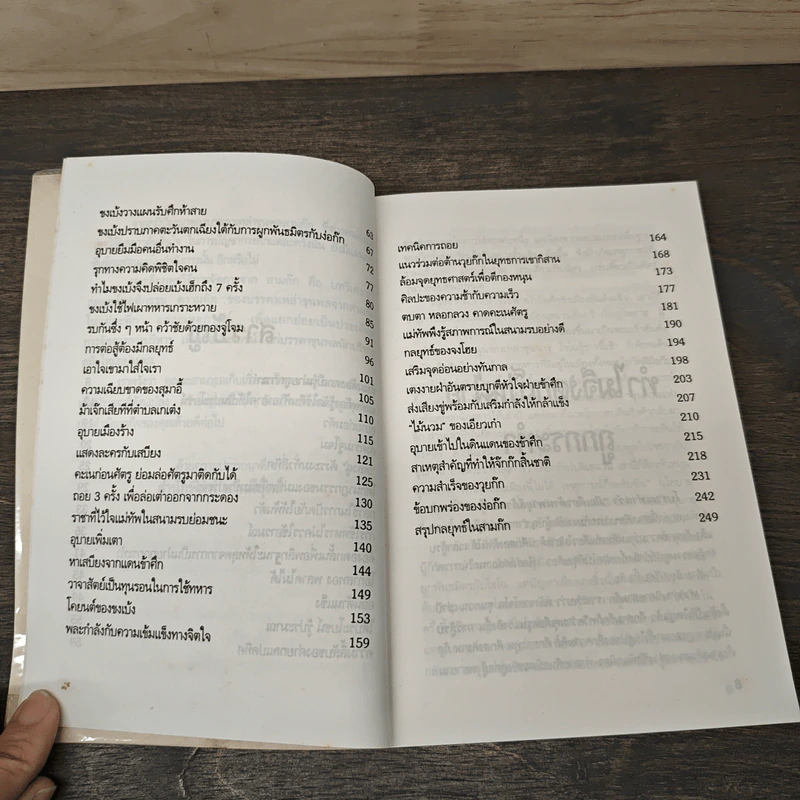 ขงเบ้งวางแผนรับศึกห้าสาย 63
ขงเบ้งปราบภาคตะวันตกเฉียงใต้กับการผูกพันธมิตรกับง่อก๊ก 67
อุบายยืมมือคนอื่นทำงาน 72
รุกทางความคิดพิชิตใจคน 77
ทำไมขงเบ้งจึงปล่อยเบ้งเฮ็กถึง 7 ครั้ง 80
ขงเบ้งใช้ไฟเผาทหารเกราะหวาย 85
รบกันซึ่ง ๆ หน้า คว้าชัยด้วยกองจู่โจม 91
การต่อสู้ต้องมีกลยุทธ์ 96
เอาใจเขามาใส่ใจเรา 101
ความเฉียบขาดของสุมาอี้ 105
ม้าเจ๊กเสียทีที่ตำบลเกเต๋ง 110
อุบายเมืองร้าง 115
แสดงละครกับเสบียง 121
คะเนก่อนศัตรู ย่อมล่อศัตรูมาติดกับได้ 125
ถอย 3 ครั้ง เพื่อล่อเต่าออกจากกระดอง 130
ราชาที่ไว้ใจแม่ทัพในสนามรบย่อมชนะ 135
อุบายเพิ่มเตา 140
หาเสบียงจากแดนข้าศึก 144
วาจาสัตย์เป็นทุนรอนในการใช้ทหาร 149
โคยนต์ของขงเบ้ง 153
พละกำลังกับความเข้มแข็งทางจิตใจ 159
เทคนิคการถอย 164
แนวร่วมต่อต้านวุยก๊กในยุทธการเขากิสาน 168
ล้อมจุดยุทธศาสตร์เพื่อตีกองหนุน 173
ศิลปะของความช้ากับความเร็ว 177
ตบตา หลอกลวง คาดคะเนศัตรู 181
แม่ทัพพึงรู้สภาพการณ์ในสนามรบอย่างดี 190
กลยุทธ์ของจงโฮย 194
เสริมจุดอ่อนอย่างทันกาล 198
เตงงายฝ่าอันตรายบุกตีหัวใจฝ่ายข้าศึก 203
ส่งเสียงขู่พร้อมกับเสริมกำลังให้กล้าแข็ง 207
"ไม้นวม" ของเอียวเก๋า 210
อุบายเข้าไปในดินแดนของข้าศึก 215
สาเหตุสำคัญที่ทำให้จ๊กก๊กสิ้นชาติ 218
ความสำเร็จของวุยก๊ก 231
ข้อบกพร่องของง่อก๊ก 242
สรุปกลยุทธ์ในสามก๊ก 249